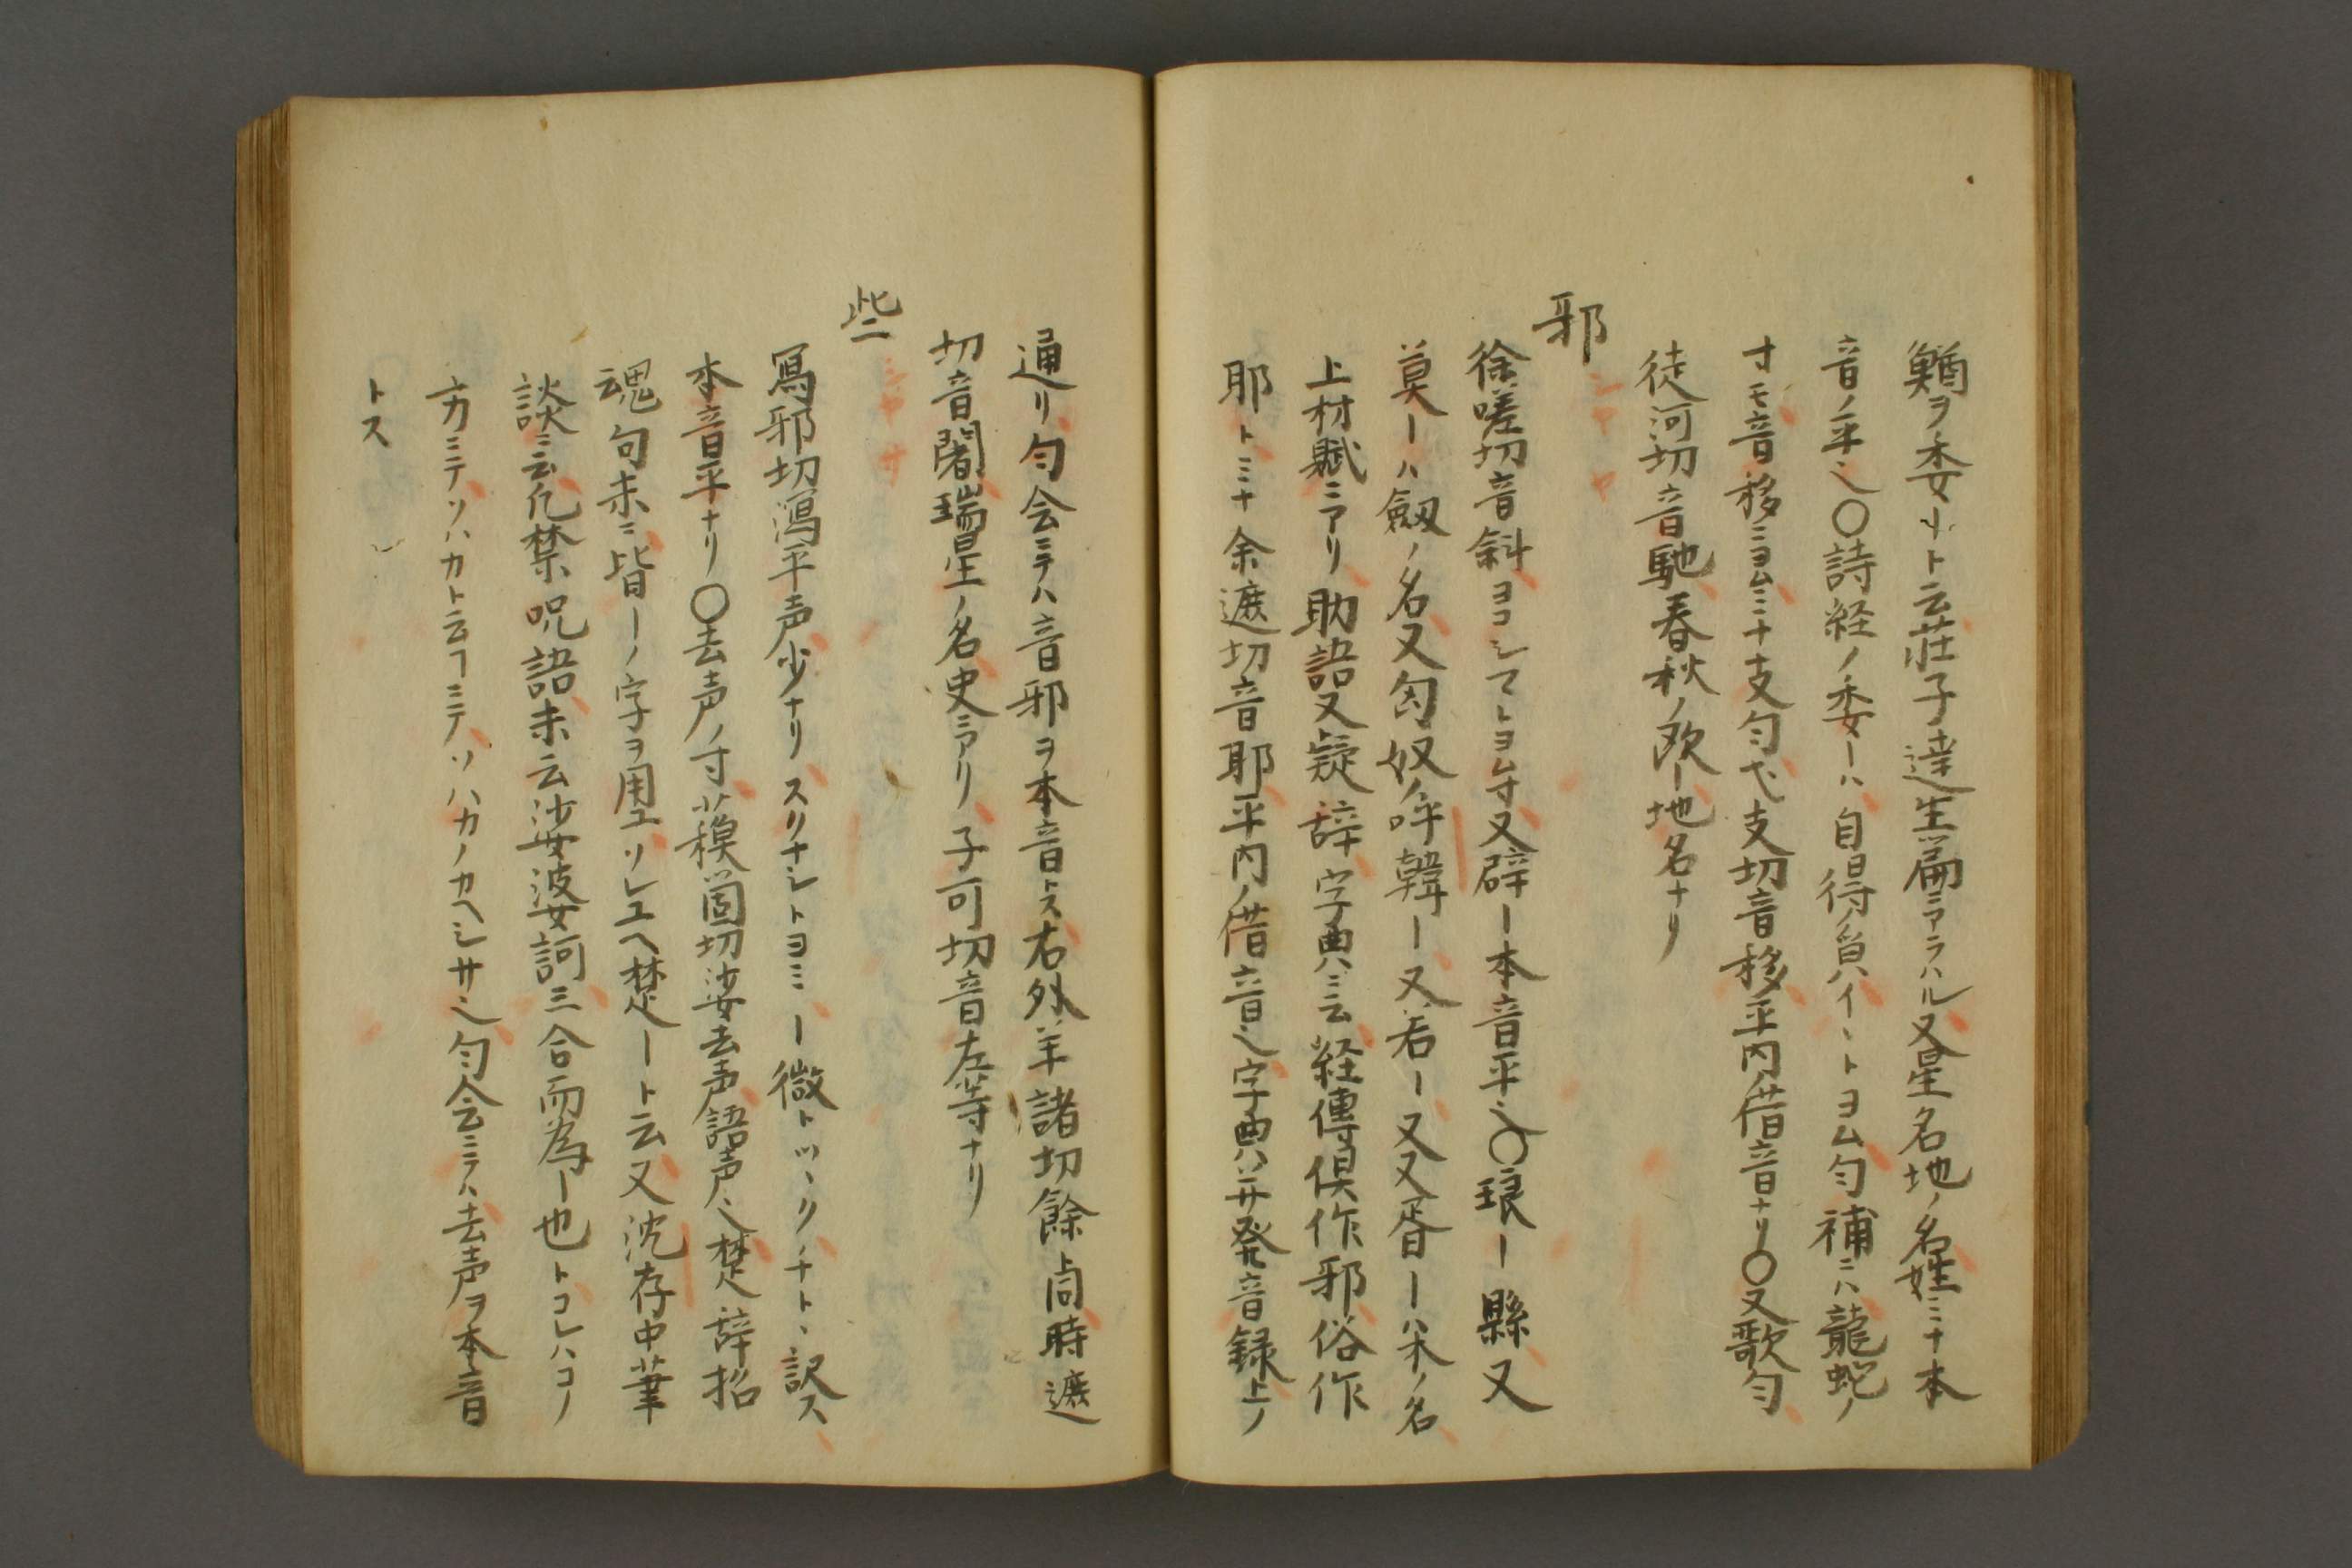 鰌ヲ委ートト云荘子達生篇ニアラハル又星名地ノ名姓ミナ本
音ノ平也〇詩経ノ委ーハ自得ノ皃ハイヽトヨム匀補ニハ龍蛇ノ
寸モ音移ニヨムミナ支匀弋支切音移平内借音ナリ〇又歌匀
徒河切音馳春秋ノ欧ー地名ナリ
邪 シヤ ヤ
徐嗟切音斜ヨコシマトヨム寸又辟ー本音平也〇琅ー縣又
莫ーハ劔ノ名又匈奴ノ呼韓ー又若ー又又胥ーハ木ノ名
上林賦ニアリ助語又疑辞字典ニ云経傳倶作邪俗作
耶トミナ余遮切音耶平内ノ借音也字典ハ并発音録上ノ
通リ匀会ニテハ音邪ヲ本音トス右外羊諸切餘同時遮
切音闍瑞星ノ名史ニアリ子可切音左等ナリ
些 シヤ サ
冩邪切瀉平声少ナリスクナシトヨミー微トツヽクチトヽ訳ス
本音平ナリ〇去声ノ寸蘓箇切娑去声語声也楚辞招
魂句末ニ皆ーノ字ヲ用ユソレユヘ楚ート云又沈存中筆
談ニ云凡禁呪語末云娑婆訶三合而為ー也トコレハコノ
方ニテソハカト云フミテソハカノカヘシサ也匀会ニテハ去声ヲ本音
トス